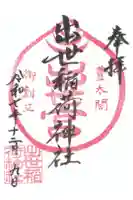 奉拝
豊太閤
出世稲荷神社
御創建
令和七年十二月九日
出世稲荷神社